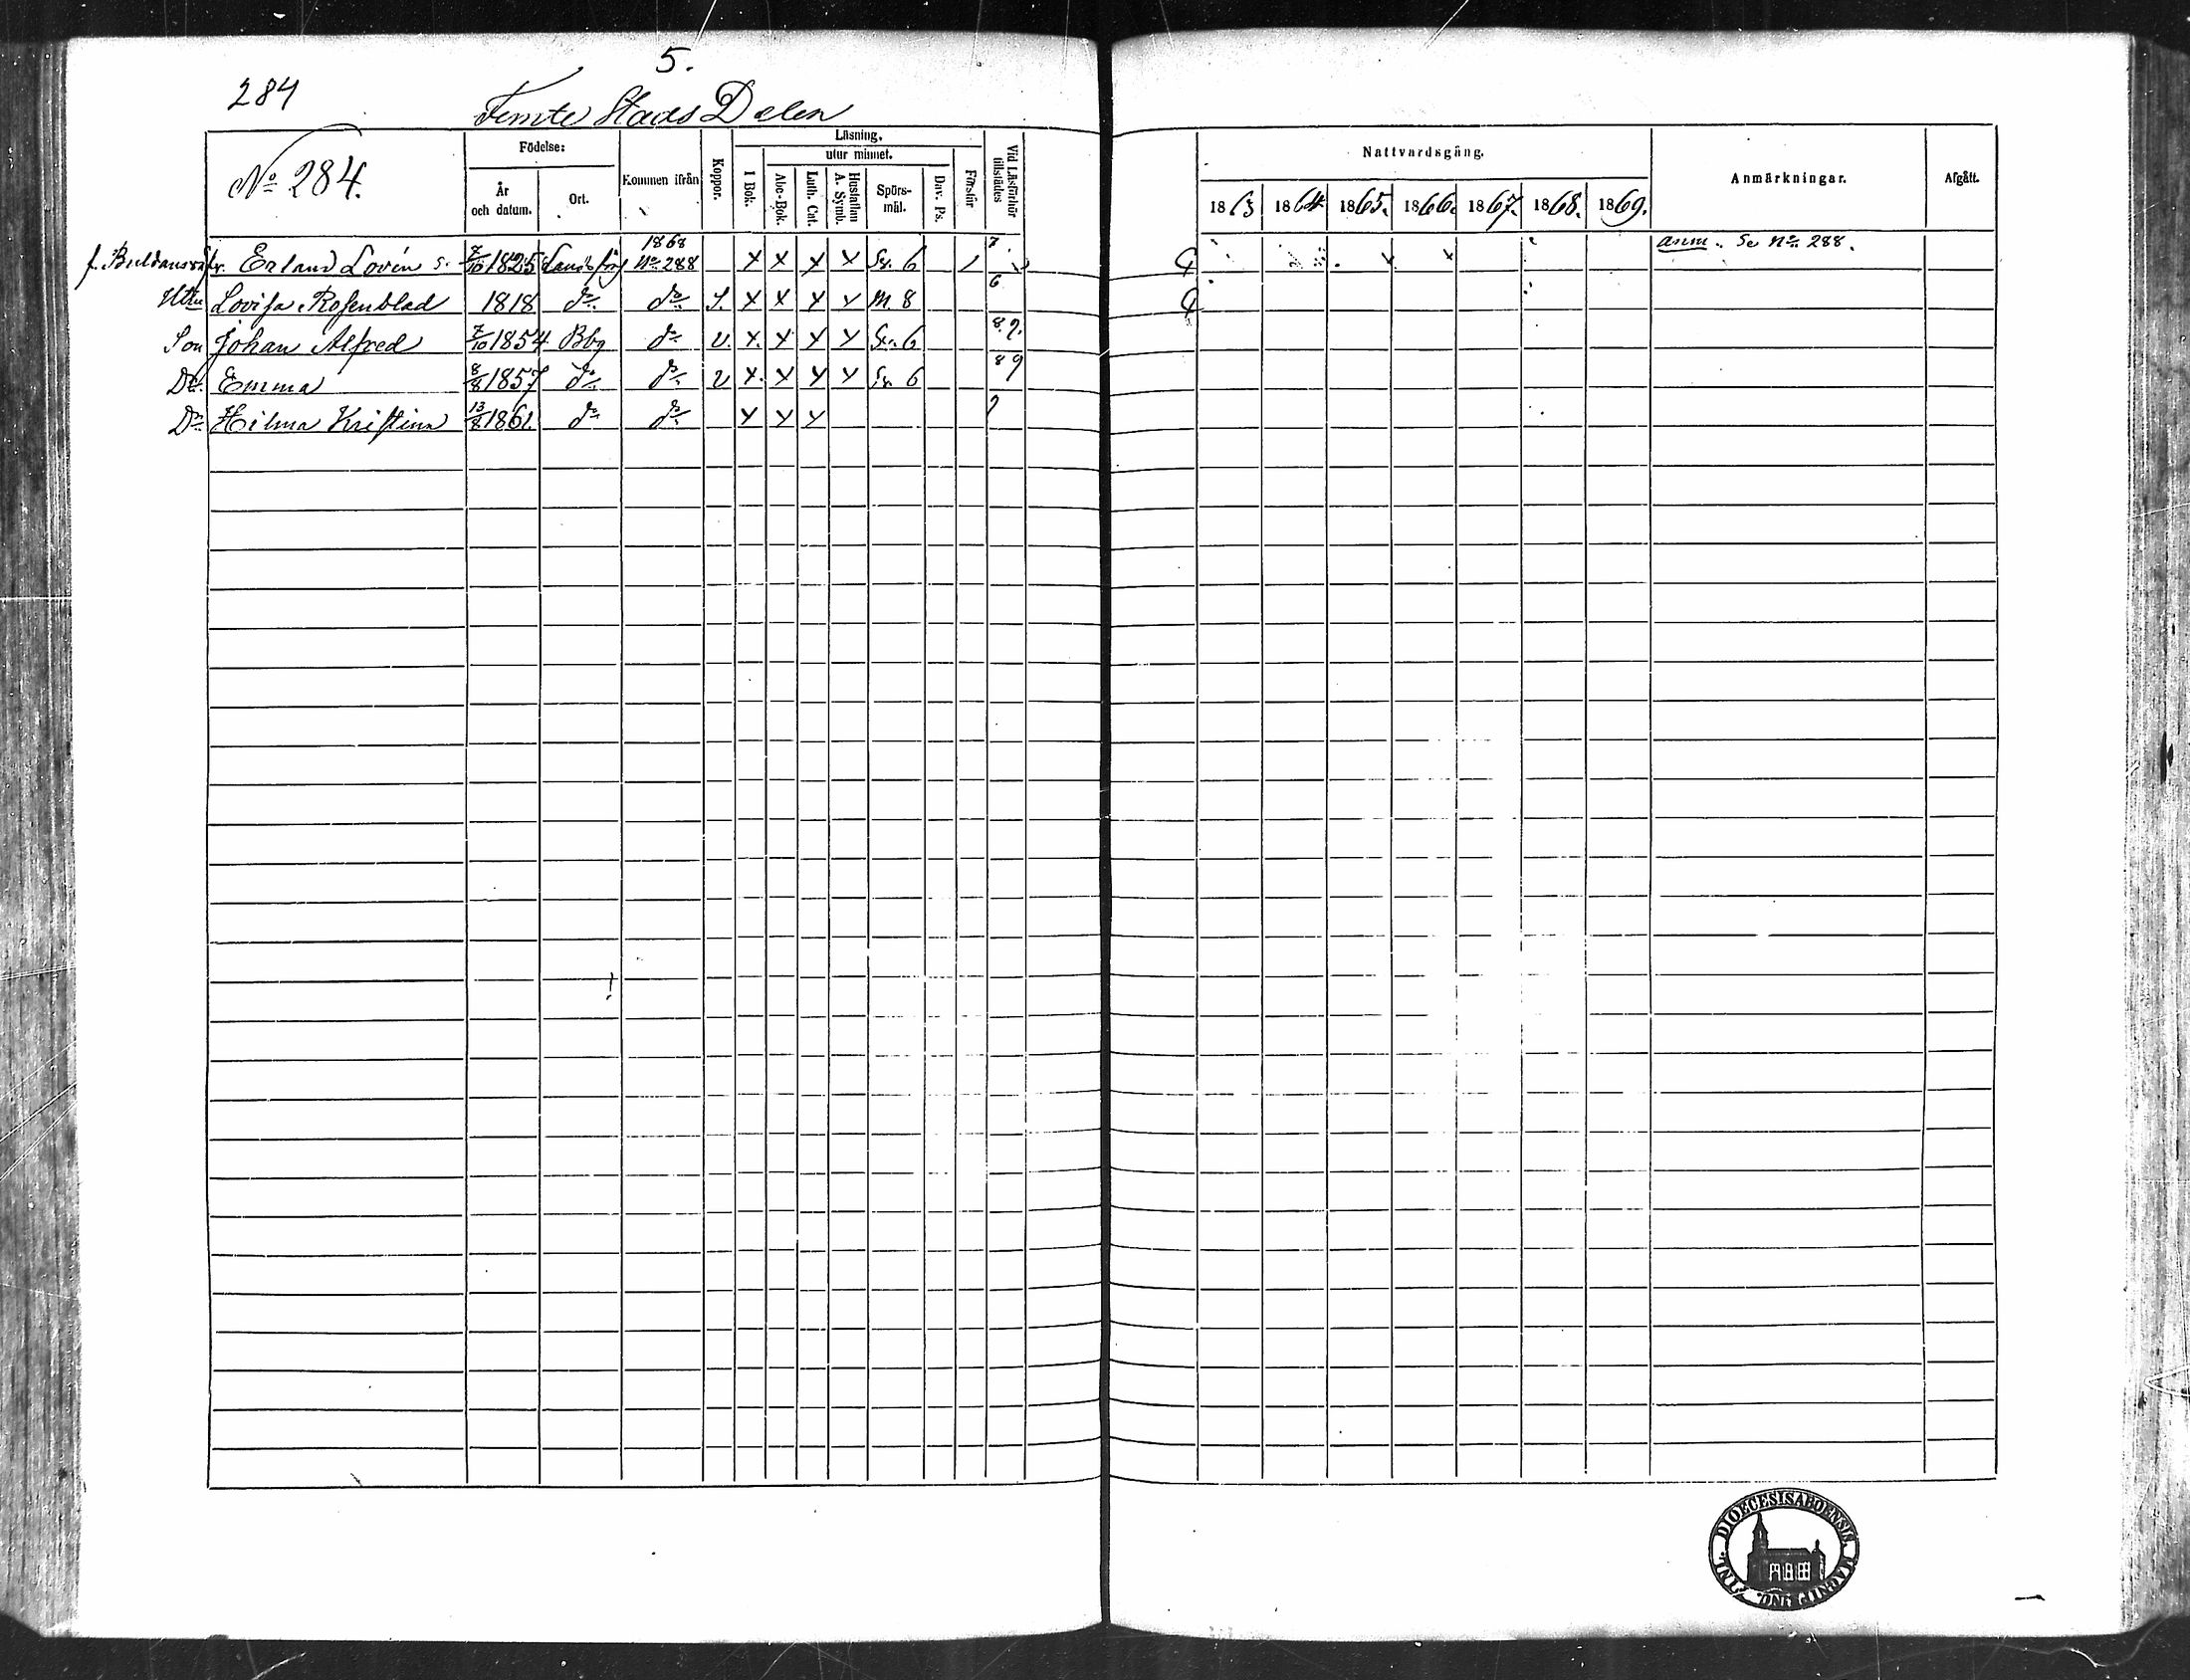 5.
284
Femte Stads Delen
No 284.
Födelse:
År och datum.
Ort.
Kommen ifrån
Koppor.
Läsning,
utur minnet.
I Bok.
Abc-Bok.
Luth. Cat.
Hustaflan A. Symb.
Spörsmål.
Dav. Ps.
Förstår
Vid Läsförhör tillstädes
Nattvardsgång.
1863 1864 1865. 1866. 1867. 1868. 1869.
Anmärkningar.
Afgått.
Erland Lovén 7/10 1825 1868 No 288 x x x x Sv. 6 7. anm. Se No 288.
Lovisa Rosenblad 1818 do do S. x x x x M. 8 6
Son Johan Alfred 7/10 1854 Bbg do v. x. x x x Sv. 6 8.9.
Dr. Emma 8/8 1857 do do v x. x x x Sv. 6 89
Dr. Hilma Kristina 13/8 1861. do do x x x 9
DIOECESIS ABOENSIS